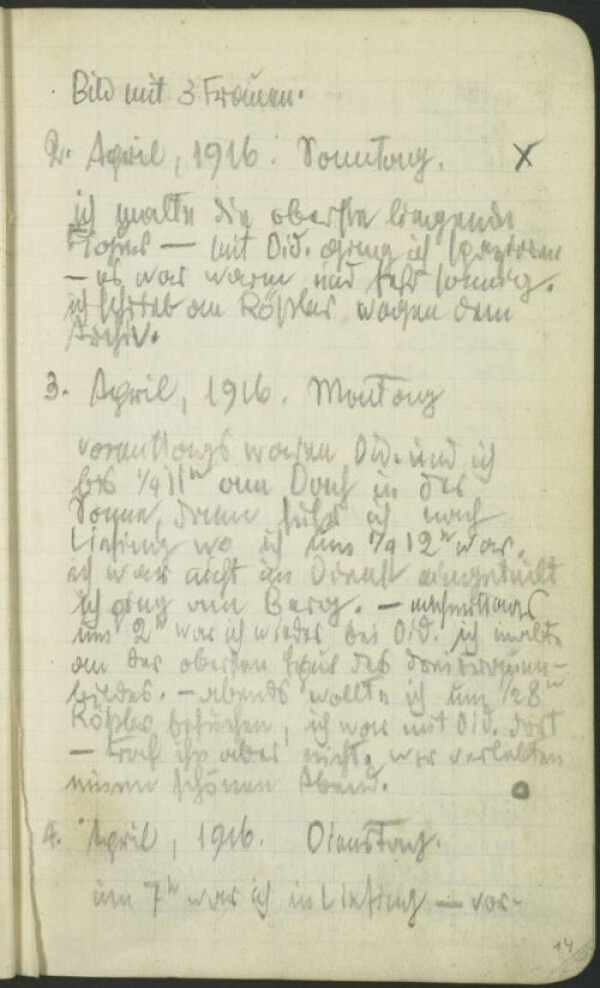 Bild mit 3 Frauen.
2. April, 1916. Sonntag. X
ich malte die oberste liegende
Figur — mit Did. ging ich spazieren
— es war warm und sehr sonnig.
ich schrieb an Rößler wegen dem
Archiv.
3. April, 1916. Montag
vormittags waren Did. und ich
bis ¼11ʰ am Dach in der
Sonne, dann fuhr ich nach
Liesing wo ich um ¼12ʰ war.
ich war nicht im Dienst eingeteilt
ich ging am Berg. — nachmittags
um 2ʰ war ich wieder bei Did. ich malte
an der obersten Figur des dreifrauen-
bildes. — abends wollte ich um ½8ʰ
Rößler besuchen, ich war mit Did. dort
— traf ihn aber nicht. wir verlebten
einen schönen Abend.
4. April, 1916. Dienstag.
um 7ʰ war ich in Liesing — vor-
14